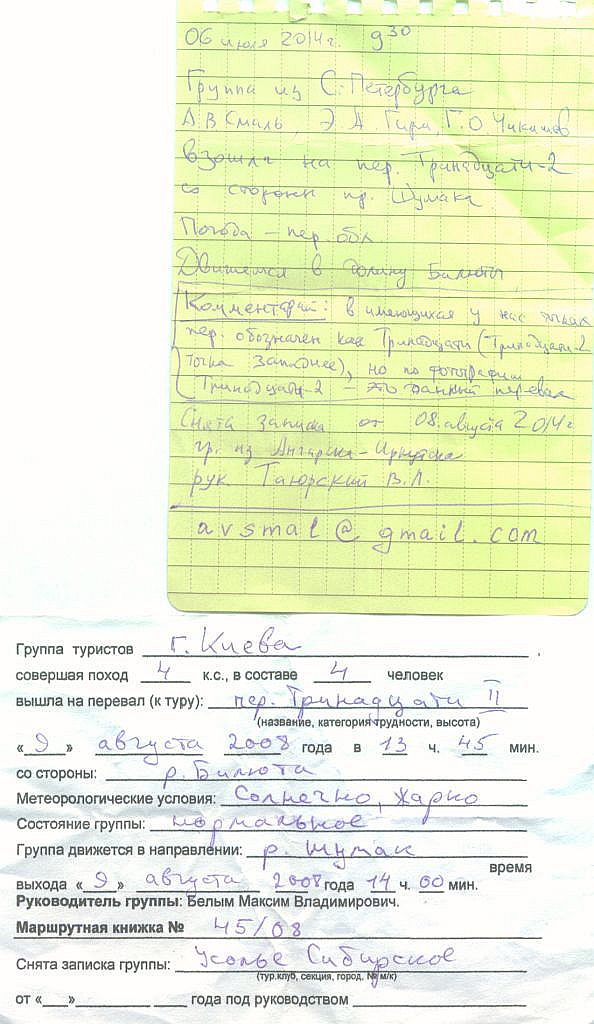 06 июля 2014 г. 9 30
Группа из С. Петербурга
А.В Смаль, Э. А. Гири, Г. О. Чикишев
взошла на пер. Тринадцати-2
со стороны пр. Шумака
Погода – пер. обл.
Движемся в долину Билюты
Комментарий: в имеющихся у нас точках
пер. обозначен как Тринадцати (Тринадцати-2
точка западнее), но по фотографии
Тринадцати-2 – это данный перевал
Снята записка от 08. августа 2014 г
гр. из Ангарска-Иркутска
рук Таюрский В.Л.
avsmal@gmail.com
Группа туристов г. Киева,
совершая поход 4 к.с., в составе 4 человек
вышла на перевал (к туру): пер. Тринадцати II
(название, категория трудности, высота)
«9» августа 2008 года в 13 ч. 45 мин.
со стороны: р. Билюта
Метеорологические условия: Солнечно, жарко
Состояние группы: нормальное
Группа движется в направлении: р. Шумак
время
выхода «9» августа 2008 года 14 ч. 00 мин.
Руководитель группы: Белым Максим Владимирович.
Маршрутная книжка № 45/08
Снята записка группы: Усолье Сибирское
(тур.клуб, секция, город, № м/к)
от «___»__________ ____ года под руководством ____________________